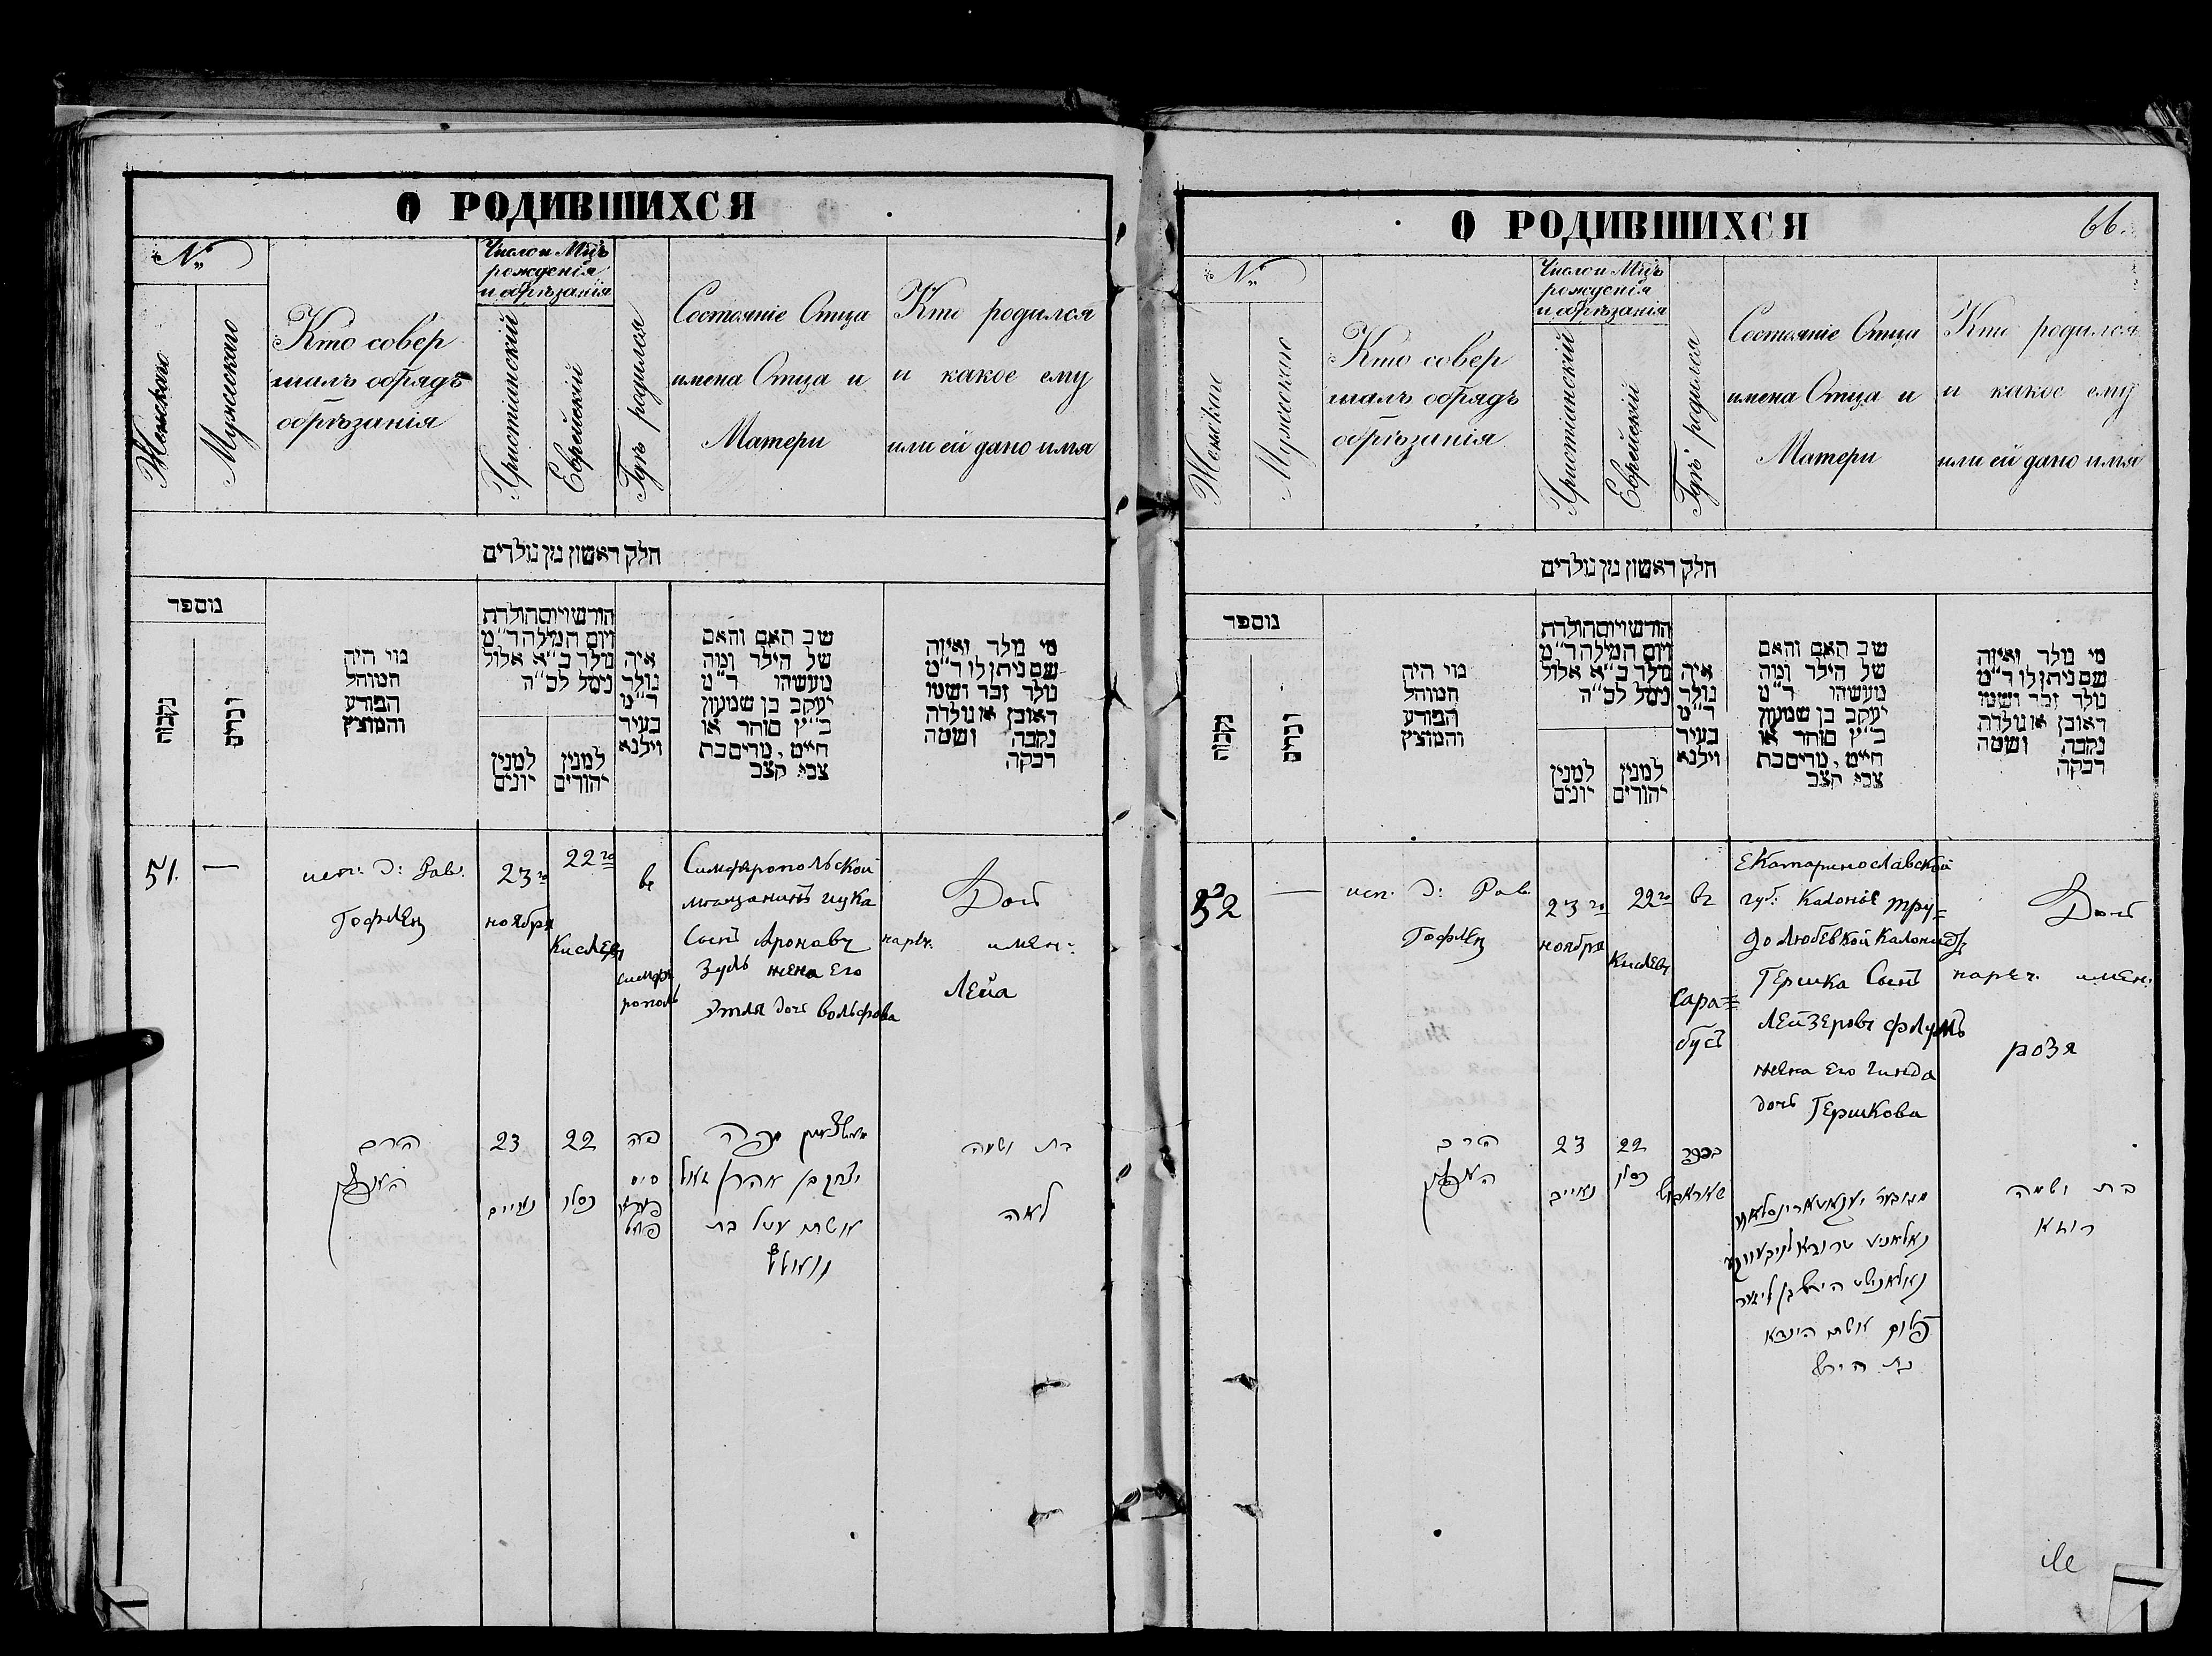 О РОДИВШИХСЯ
№
Женскаго
Мужескаго
Кто совер
шалъ обрядъ
обрѣзанія
Число и Мцъ
рожденія
и обрѣзанія
Христіанскій
Еврейскій
Гдѣ родился
Состояніе Отца
имена Отца и
Матери
Кто родился
и какое ему
или ей дано имя
חלק ראשון מן נולדים
מספר
נקבות
זכרים
מי היה
המוהל
הפורע
והמוצץ
חודש ויום הולדת
ויום המילה ד"מ
נולד כ"א אלול
ניסל לכ"ה
למנין
יונים
למנין
יהודים
איה
נולד
ד"מ
בעיר
וילנא
שב האם והאם
של הילד ומה
מעשהו ד"מ
יעקב בן שמעון
כ"ץ סוחר או
חייט, מרים בת
צבי קצב
מי נולד ואיזה
שם ניתן לו ד"מ
נולד זכר ושמו
ראובן או נולדה
נקבה ושמה
רבקה
51.
—
исп: д: Рав.
Гофлец
23го
ноября
22го
Кислевъ
въ
симфе
рополь
Симферопольской
мещанинъ ицка
Сынъ Ароновъ
Зуль жена Его
Этля дочь вольфова
Дочь
нареч. имен:
Лейа
הרב
23
22
פה
סימ
יצחק בן אהרן זאול
אשתו עטל בת
בת ושמה
לאה
О РОДИВШИХСЯ
66.
№
Женскаго
Мужескаго
Кто совер
шалъ обрядъ
обрѣзанія
Число и Мцъ
рожденія
и обрѣзанія
Христіанскій
Еврейскій
Гдѣ родился
Состояніе Отца
имена Отца и
Матери
Кто родился
и какое ему
или ей дано имя
חלק ראשון מן נולדים
מספר
נקבות
זכרים
מי היה
המוהל
הפורע
והמוצץ
חודש ויום הולדת
ויום המילה ד"מ
נולד כ"א אלול
ניסל לכ"ה
למנין
יונים
למנין
יהודים
איה
נולד
ד"מ
בעיר
וילנא
שב האם והאם
של הילד ומה
מעשהו ד"מ
יעקב בן שמעון
כ"ץ סוחר או
חייט, מרים בת
צבי קצב
מי נולד ואיזה
שם ניתן לו ד"מ
נולד זכר ושמו
ראובן או נולדה
נקבה ושמה
רבקה
52
—
исп. д: Рав.
Гофлец
23го
ноября
22го
Кислевъ
въ
Сара=
бусъ
Екатеринославской
губ: Калоніе тру=
долюбевкой
Гершка Сынъ
Лейзеровъ Флумъ
жена его гинда
дочь Гершкова
Дочь
нареч. имен:
розя
הרב
23
22
כסלו
הירש בן ליזער
פלום אשתו הינדא
בת הירש
בת ושמה
רוזא